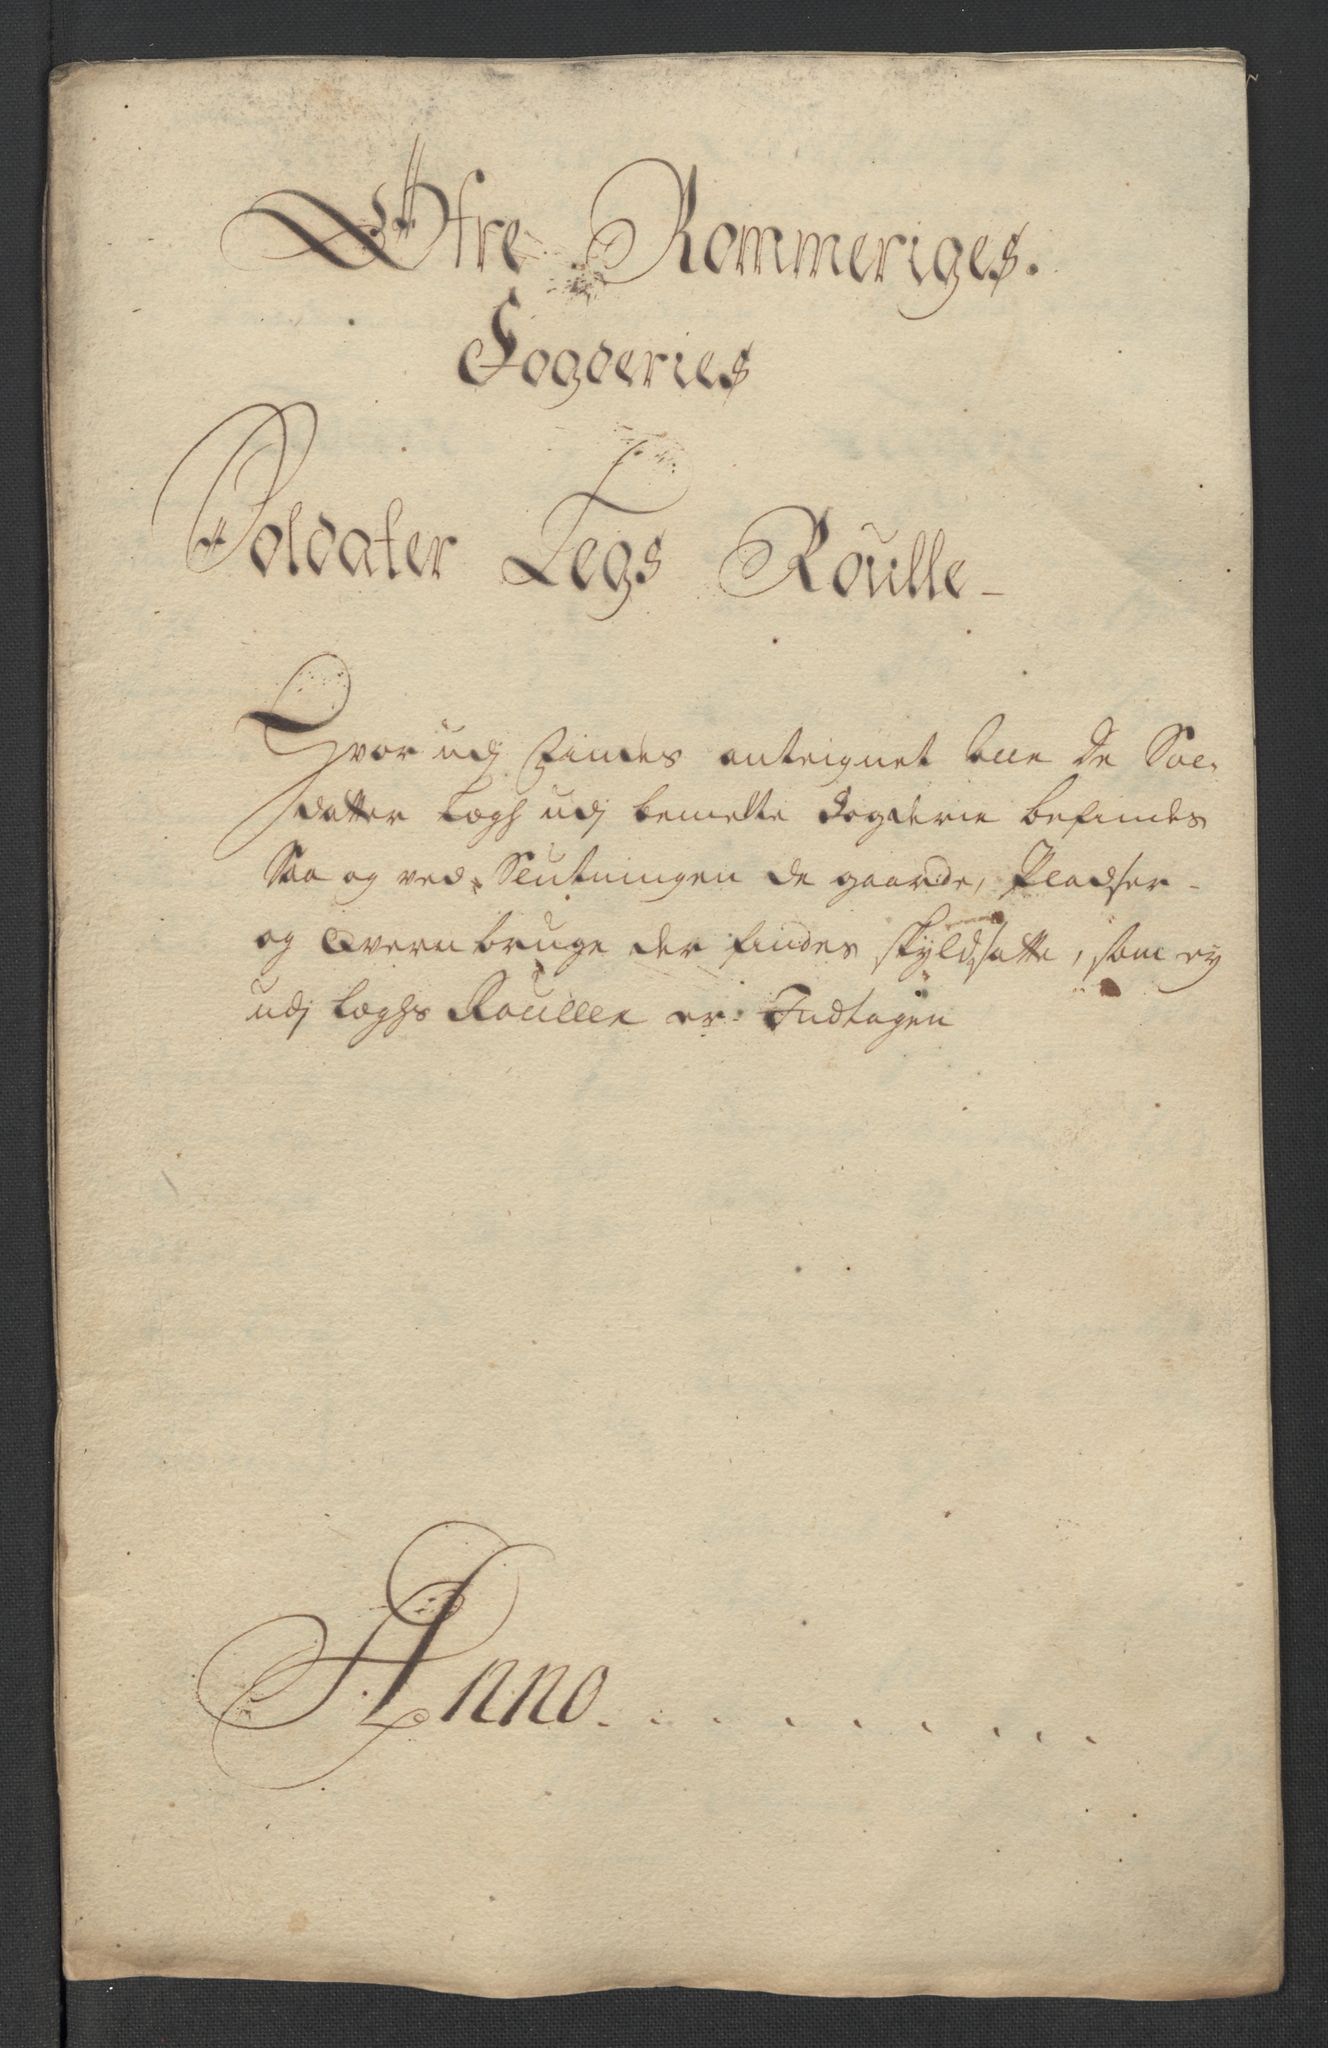 Øfre Rommeriges.
Fogderies
Soldater Legs Roulle-
Hvor udj findes anteignet alle de Sol-
datter Legh udj bemelte Fogderie befindes
Saa og ved Slutningen de gaarde, Pladser
og Qvern bruge der findes skyldsatte, som ey
udj Leghs Roullen er Indtagen
Anno. . . . . . . . . .